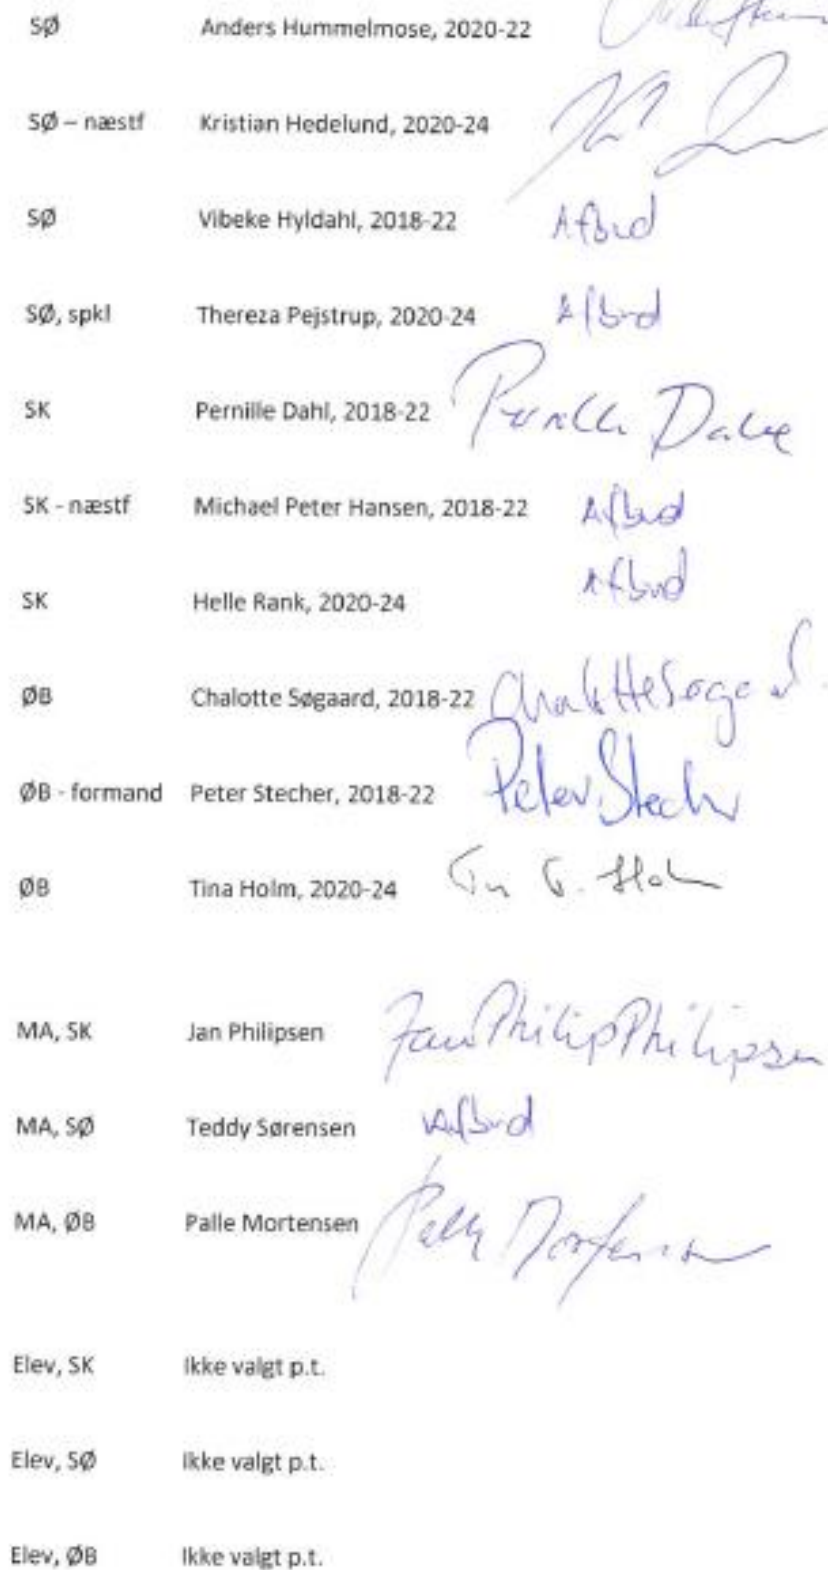 SØ Anders Hummelmose, 2020-22
SØ – næstf Kristian Hedelund, 2020-24
SØ Vibeke Hyldahl, 2018-22 Afbud
SØ, spkl Thereza Pejstrup, 2020-24 Afbud
SK Pernille Dahl, 2018-22 Pernille Dahl
SK - næstf Michael Peter Hansen, 2018-22 Afbud
SK Helle Rank, 2020-24 Afbud
ØB Chalotte Søgaard, 2018-22 Chalotte Søgaard
ØB - formand Peter Stecher, 2018-22 Peter Stecher
ØB Tina Holm, 2020-24
MA, SK Jan Philipsen Jan Philip Philipsen
MA, SØ Teddy Sørensen Afbud
MA, ØB Palle Mortensen Palle Mortensen
Elev, SK Ikke valgt p.t.
Elev, SØ Ikke valgt p.t.
Elev, ØB Ikke valgt p.t.